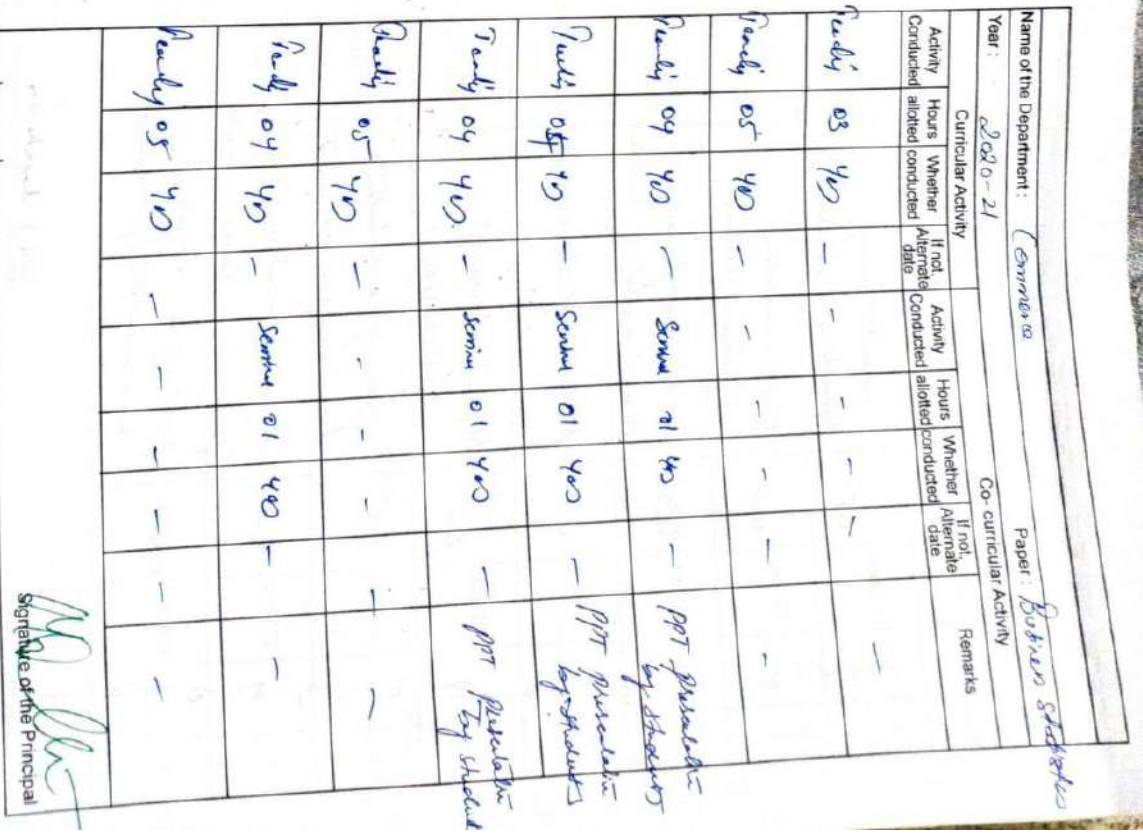 Name of the Department: Commerce Paper: Business Statistics
Year: 2020-21
Curricular Activity Co- curricular Activity Remarks
Activity Conducted Hours allotted Whether conducted If not, Alternate date Activity Conducted Hours allotted Whether conducted If not, Alternate date
03 yes - - - - - -
05 yes - - - - - -
04 yes - Seminar 01 yes - PPT presentation by students
yes - Seminar 01 yes - PPT presentation by students
04 yes - Seminar 01 yes - PPT presentation by student
05 yes - - - - - -
04 yes - Seminar 01 yes - -
05 yes - - - - - -
Signature of the Principal